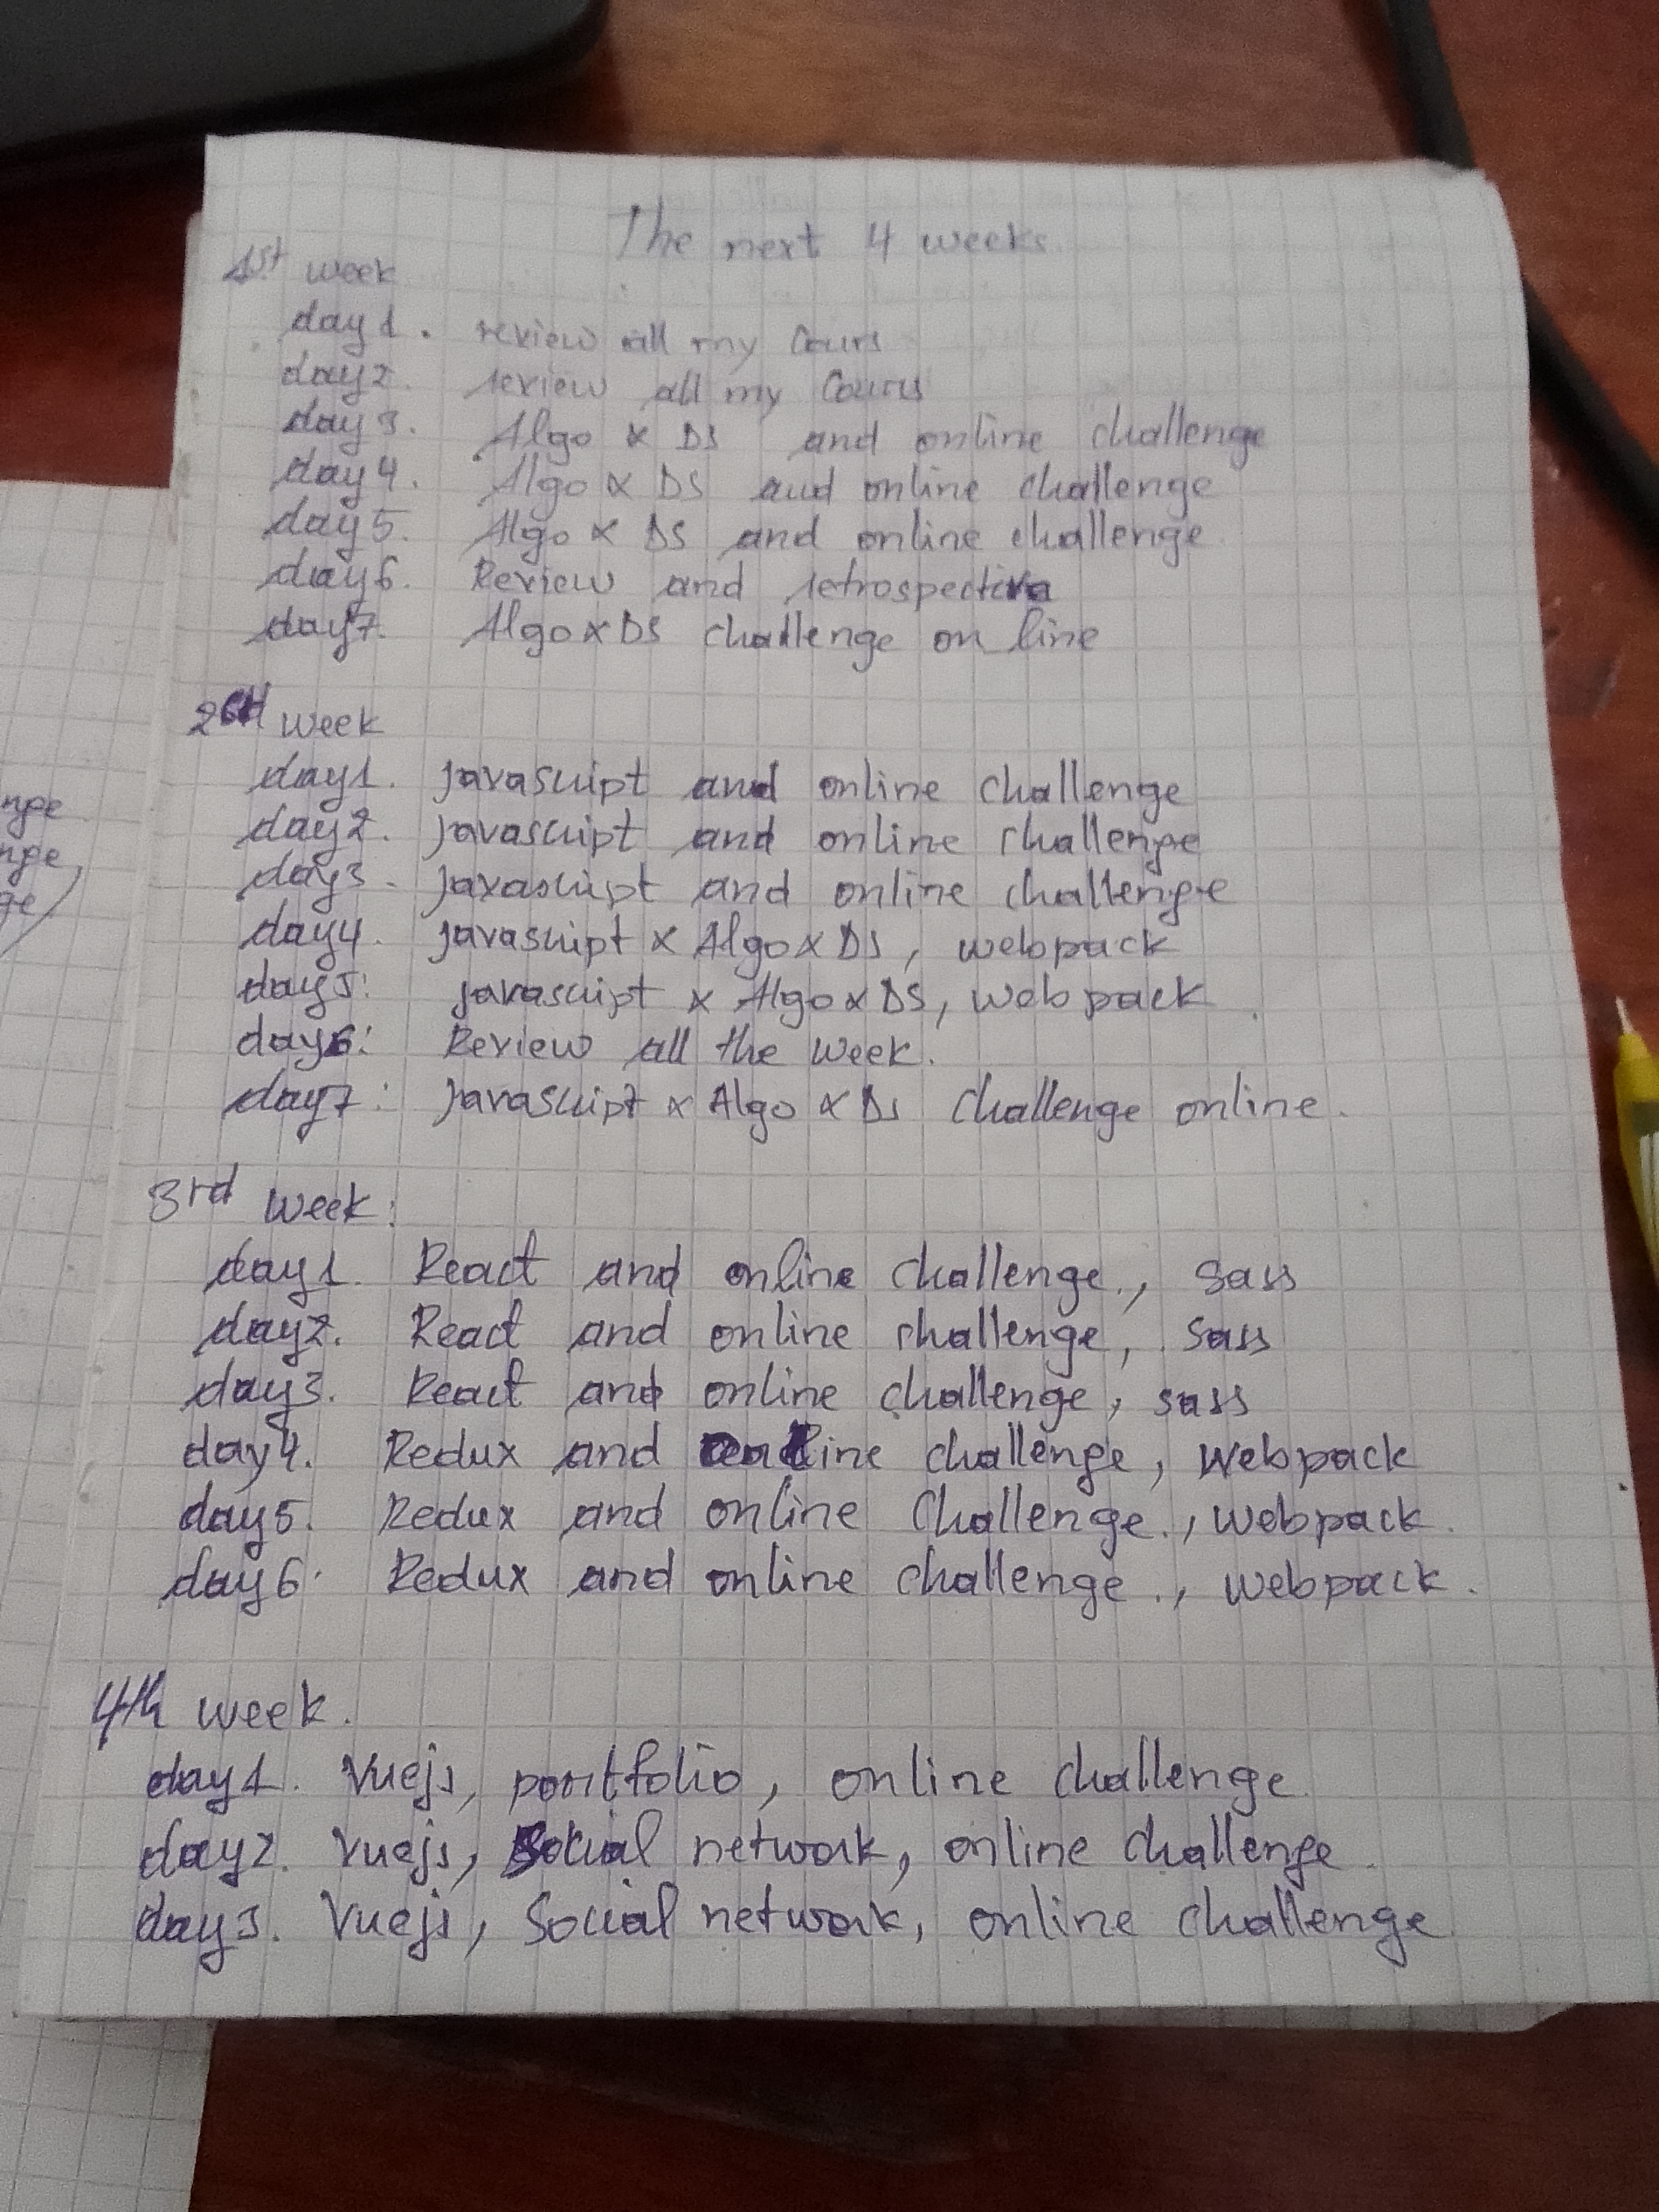 The next 4 weeks
1st week
day1. review all my Cours
day2. review all my Cours
day3. Algo x DS and online challenge
day4. Algo x DS and online challenge
day5. Algo x DS and online challenge
day6. Review and retrospectiva
day7. Algo x DS challenge on line
2 week
day1. javascript and online challenge
day2. javascript and online challenge
day3. javascript and online challenge
day4. javascript x Algo x DS, webpack
day5: javascript x Algo x DS, webpack.
day6: Review all the week.
day7: javascript x Algo x DS challenge online.
3rd week:
day1. React and online challenge., sass
day2. React and online challenge, sass
day3. React and online challenge, sass
day4. Redux and online challenge, webpack
day5. Redux and online challenge., webpack.
day6. Redux and online challenge., webpack.
4th week.
day1. Vuejs, portfolio, online challenge
day2. Vuejs, Social network, online challenge.
day3. Vuejs, Social network, online challenge
nge
nge
ge